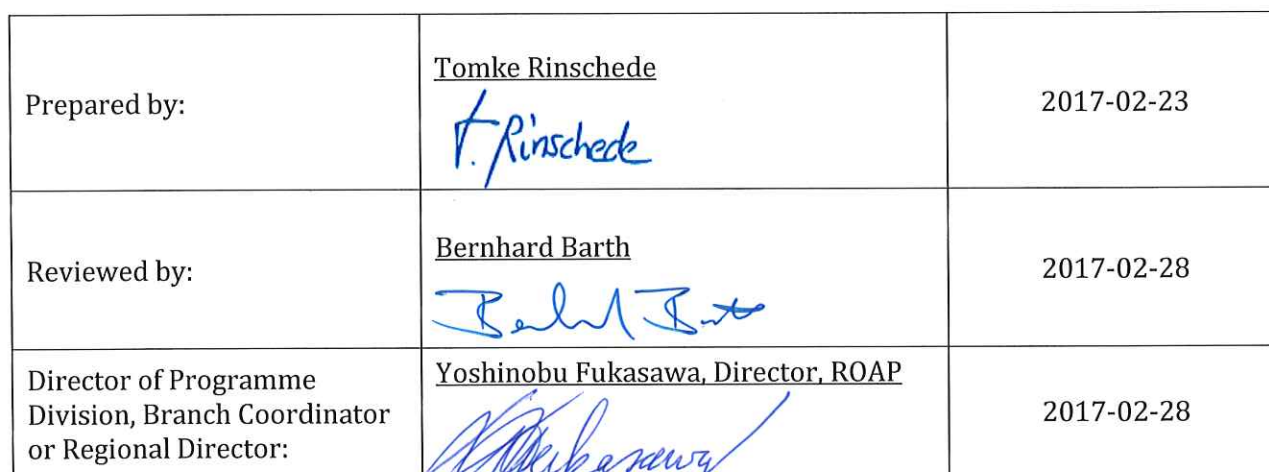 Prepared by:
Tomke Rinschede
T. Rinschede
2017-02-23
Reviewed by:
Bernhard Barth
Bernhard Barth
2017-02-28
Director of Programme
Division, Branch Coordinator
or Regional Director:
Yoshinobu Fukasawa, Director, ROAP
2017-02-28